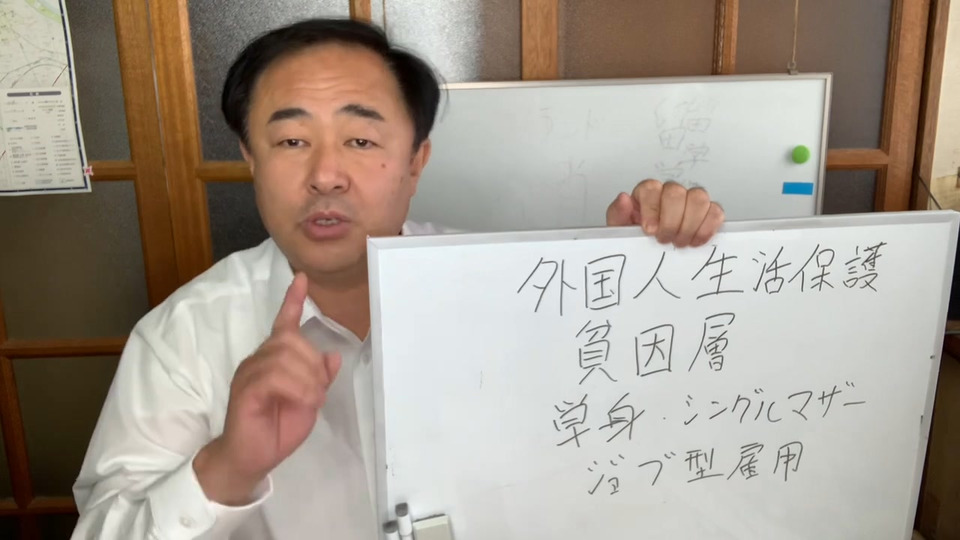 外国人生活保護
貧因層
単身・シングルマザー
ジョブ型雇用